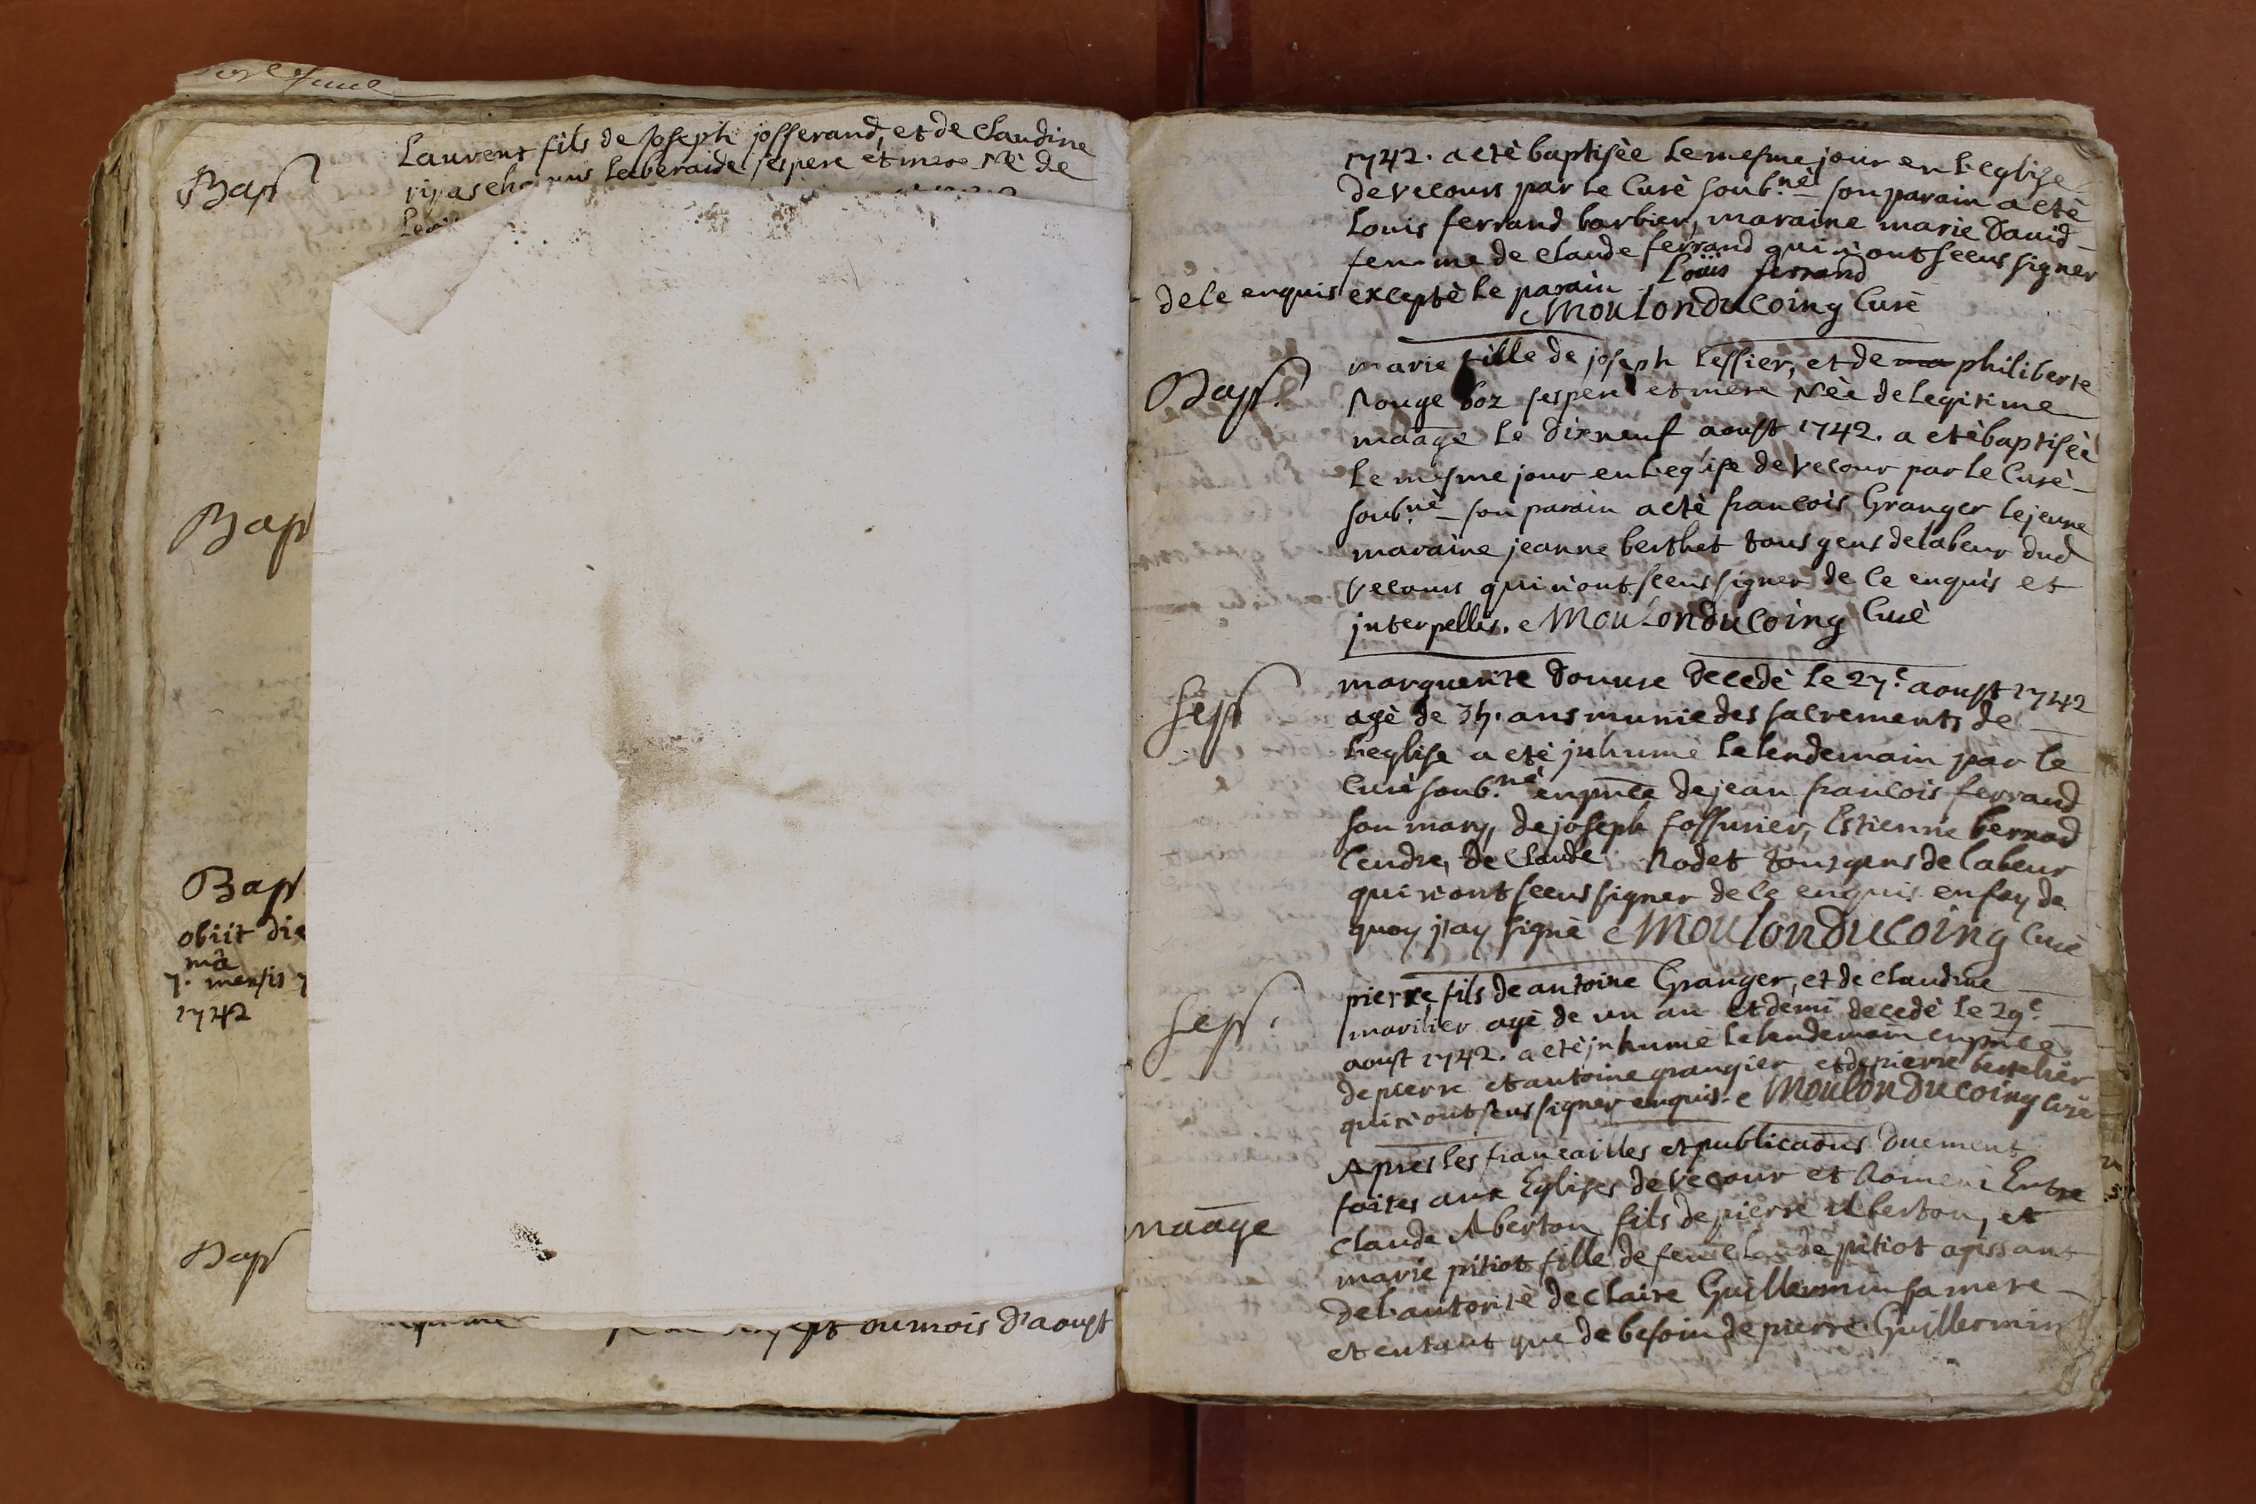 Bap
Laurent fils de Joseph josserand, et de Claudine
ses pere et mere Né de
Bap
Bap
obiit die
7.mâ mensis 7
1742
Bap
du mois d'aoust
1742. a etè baptisèe le mesme jour en l'eglise
de vecour par le Curè soub.nè son parain a etè
Louis ferrand barbier, maraine marie David
femme de claude ferrand qui n'ont sceus signer
de ce enquis exceptè le parain. Loüis ferrand
Moulonducoing Curè
Bap.
marie fille de joseph tessier, et de ma philiberte
Rouge boz ses pere et mere Nèe de legitime
maãge le dixneuf aoust 1742. a etè baptisèe
le mesme jour en l'eglise de vecour par le Curè
soub.nè son parain a etè francois Granger le jeune
maraine jeanne berthet tous gens de labeur dud
vecour qui n'ont sceus signer de ce enquis et
interpellès. Moulonducoing Curè
Sep
marguerite Donure decedè le 27.e aoust 1742
agè de 35. ans munie des sacrements de
l'eglise a etè inhumè le lendemain par le
Curè soub.nè en pñce de jean francois ferrand
son mary, de joseph fossurier, Estienne bernard
Cendre, de Claude Rodet tous gens de labeur
qui n'ont sceus signer de ce enquis en foy de
quoy j'ay signè Moulonducoing Curè
Sep.
pierre fils de antoine Granger, et de claudine
marilier agè de un an et demi decedè le 29.e
aoust 1742. a etè inhumè le lendemain en pñce
de pierre et antoine grangier et de pierre bertelier
qui n'ont sceus signer enquis. Moulonducoing Curè
maãge
Apres les fiancailles et publicaõns duement
faites aux Eglises de vecour et Romenai Entre
Claude Alberton fils de pierre Alberton, et
marie pitiot fille de feu Claude pitiot agissant
de l'autoritè de Claire Guillermin sa mere
et entant que de besoin de pierre Guillermin